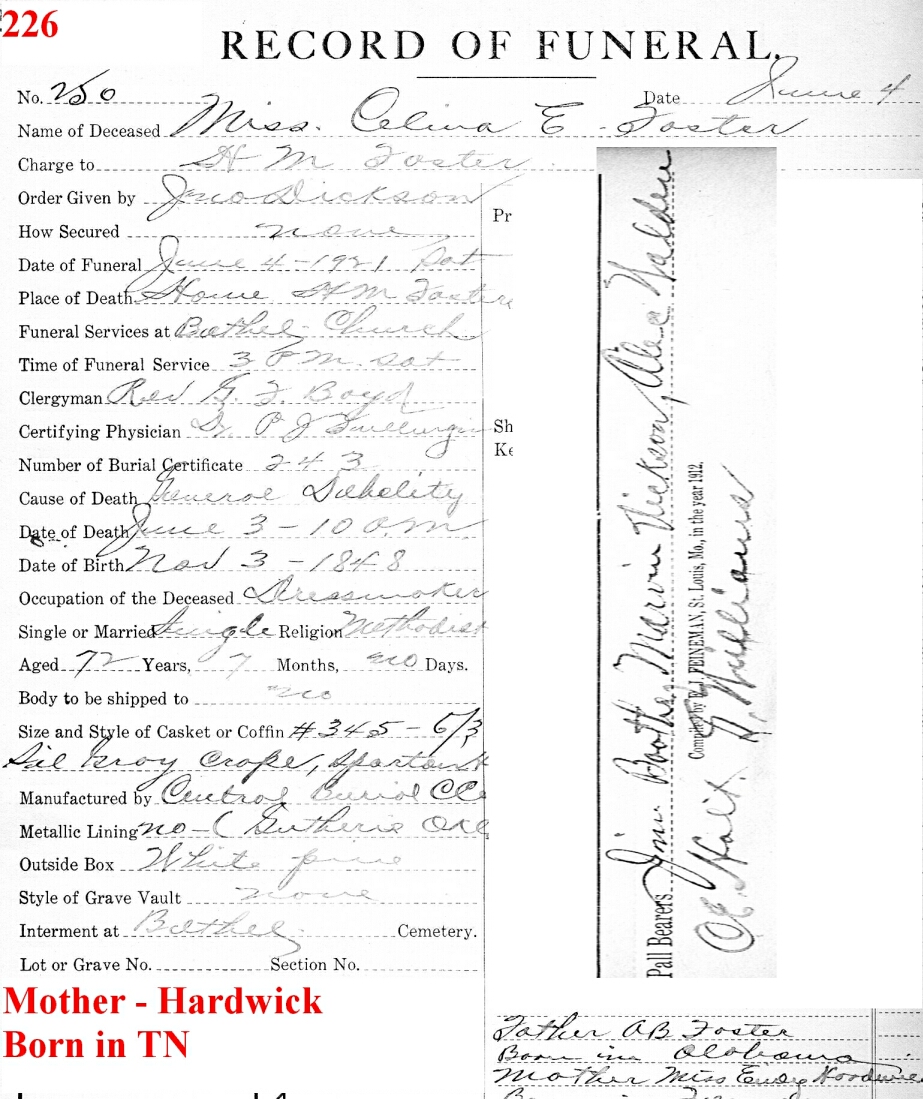 226
RECORD OF FUNERAL.
No. 250 Date June 4
Name of Deceased Miss. Celina E. Foster
Charge to H M Foster
Order Given by Jno Dickson
How Secured none
Date of Funeral June 4-1921 Sat
Place of Death Home H M Fosters
Funeral Services at Bethel Church
Time of Funeral Service 3 P M Sat
Clergyman Rev G. F. Boyd
Certifying Physician Dr P J
Number of Burial Certificate 243
Cause of Death General Debelity
Date of Death June 3-10 a.m
Date of Birth Nov 3-1848
Occupation of the Deceased Dressmaker
Single or Married Single Religion Methodist
Aged 72 Years, 7 Months, no Days.
Body to be shipped to no
Size and Style of Casket or Coffin #345-6/3
Sil Gray Crape,
Manufactured by Central Burial
Metallic Lining no-( Gutherie Okl
Outside Box White pine
Style of Grave Vault none
Interment at Bethel Cemetery.
Lot or Grave No. Section No.
Pr
Sh
Ke
Pall Bearers Jim Booth, Marvin Dickson, Alec Walden
Compiled by F. J. FEINEMAN, St. Louis, Mo., in the year 1912.
Williams
Mother - Hardwick
Born in TN
Father A B Foster
Born in Alabama
Mother Miss Hardwic